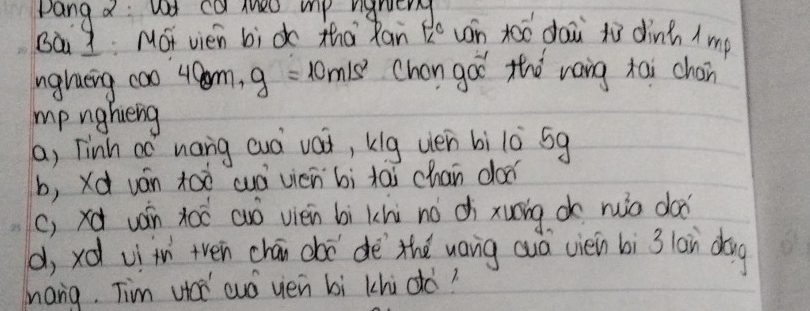 Dạng 2: Vật cđ theo mp nghiêng
Bài 1: Một viên bi đc thả lăn ko vận tốc đầu từ đỉnh 1 mp
nghiêng cao 40cm, g = 10m/s² Chọn gốc thế năng tại chân
mp nghiêng
a, Tính cơ năng của vật, klg viên bi là 5g
b, Xđ vận tốc của viên bi tại chân dốc
c, xđ vận tốc của viên bi khi nó đi xuống đc nửa dốc
d, xđ vị trí trên chân dốc để thế năng của viên bi 3 lần động
năng. Tìm vtốc của viên bi khi đó?